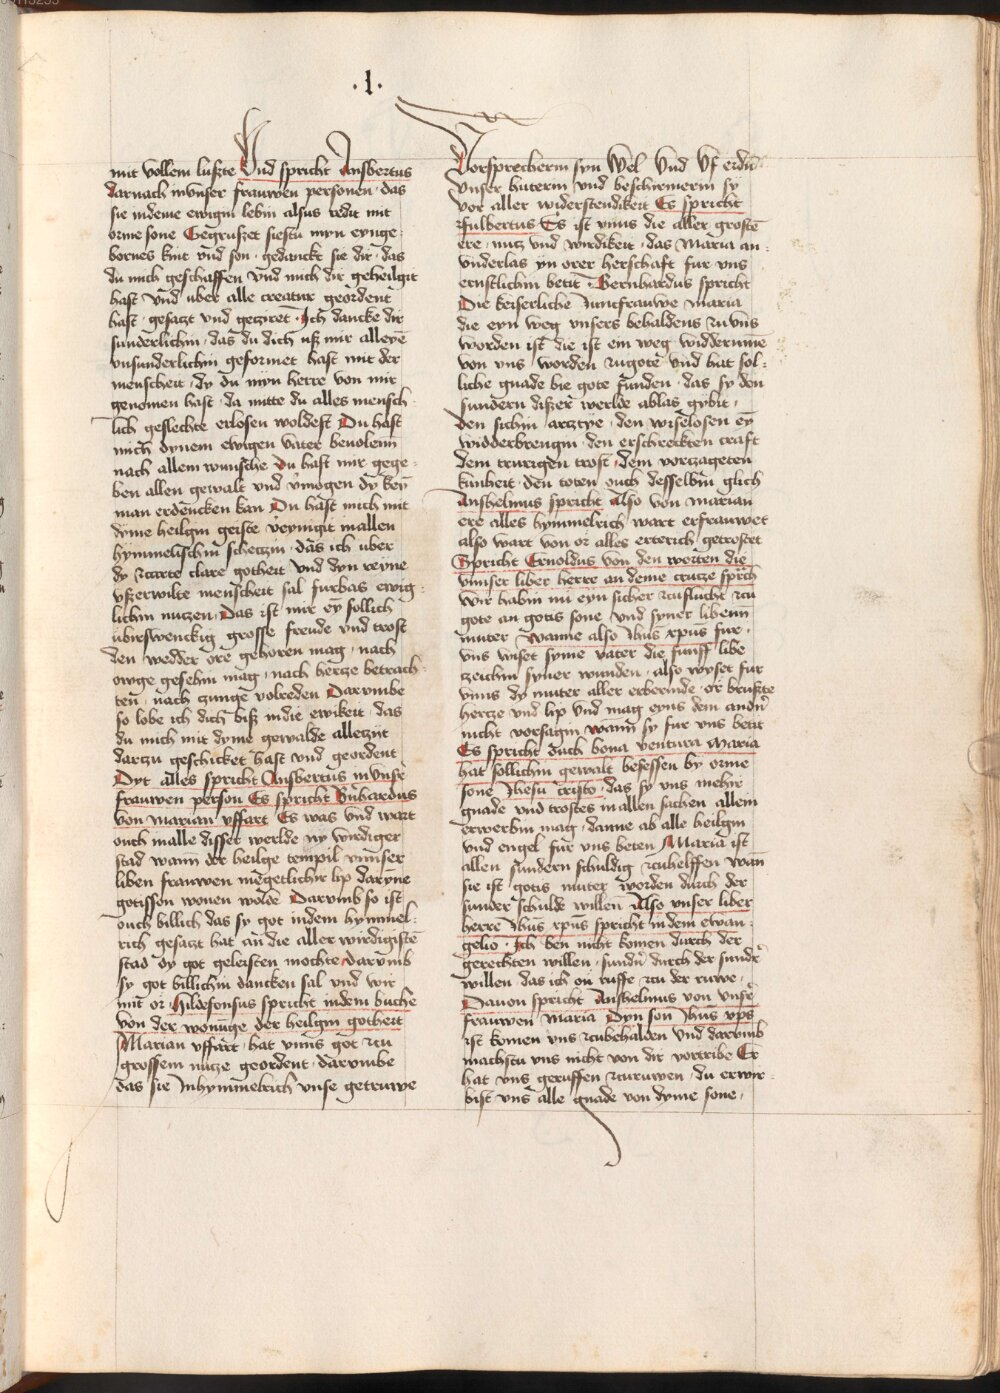 .l.
mit vollem luste Vnd spricht Ansbertus
darnach in vnser frauwen personen · das
sie in deme ewigin lebin alsus redit mit
orme sone Gegruszet siestu myn eynge-
bornes kint vnd son · gedanckt sie dir · das
du mich geschaffen vnd mich dir geheilgit
hast vnd uber alle creatur geordent
hast · gesatzt vnd geziret · Ich dancke dir
sunderlichin · das du dich usz mir alleyē
vnsunderlichin geformet hast mit der
menscheit · dy du myn herre von mir
genomen hast · da mitte du alles mensch-
lich geslechte erlosen woldest Du hast
mich dynem ewigen vater beuolenn
nach allem wunsche Du hast mir gege-
ben allen gewalt vnd vmogen dy keyn
man erdencken kan Du hast mich mit
dyme heilgin geiste veynigit in allen
hymmelischin schetzin · das ich uber
dy zcarte clare gotheit vnd dyn reyne
vszerwilte menscheit sal furbas ewig-
lichin nutzen · Das ist mir eȳ sollich
ubirswenckig grosse freude vnd trost
den wedder ore gehoren mag · nach
owge gesehin mag · nach hertze betrach-
ten · nach zunge volreden Darvmbe
so lobe ich dich bisz in die ewikeit · das
du mich mit dyme gewalde alleziit
dartzu geschicket hast vnd geordent
Dyt alles spricht Ansbertus in vnser
frauwen person Es spricht Bernhardus
von marian vffart Es was vnd wart
ouch in alle disser werlde ny wirdiger
stad wann der heilge tempil vnnser
liben frauwen megetlichir lip darynne
gotisson wonen wolde Darvmb so ist
ouch billich das sy got in dem hymmel-
rich gesatzt hat an die aller wirdigistē
stad dy got geleisten mochte · darvmb
sy got billichin dancken sal vnd wir
mit or · Hildefonsus spricht in dem buche
von der wonūge der heilgin gotheit
Marian vffart · hat vnns got zcu
grossem nutze geordent · darvmbe
das sie In hymmelrich vnse getruwe
Vorsprecherin syn Wel vnd vf erdin
vnser huterin vnd beschirmerin sy
vor aller widerstendikeit Es spricht
Fulbertus Es ist vnns die aller groste
ere · nutz vnd wirdikeit · das Maria an-
vnderlas yn orer herschaft fur vns
ernstlichin betit · Bernhardus spricht
Die keiserliche Iuncfrauwe maria
die eyn weg vnsers behaldens zu vns
worden ist die ist ein weg widdervmē
von vns worden zu gote vnd hat sol-
liche gnade bie gote funden · das sy den
sundern diszer werlde ablas gybit ·
den sichin artztye · den wiselosen eȳ
widderbrengin · den erschreckten craft
dem trurigen trost · dem vorzageten
kunheit · den toten ouch desselbin glich
Anshelmus spricht Also von marian
ere alles hymmelrich wart erfrauwet
also wart von or alles ertrich getrostet
Spricht Ernoldus von den worten die
vnnser liber herre an deme crutze sprach
Wir habin nu eyn sicher zcuflucht zcu
gote an gotis sone vnd syner libenn
muter Wanne also Ihūs xp̄us fur ·
vns wiset syme vater die funff libe
zeichin syner wunden · also wyset fur
vnns dy muter aller erbermde · or bruste
hertze vnd lip vnd mag eyns dem andn̄
nicht vorsagin wann sy fur vns betit
Es spricht ouch bona ventura Maria
hat sollichin gewalt besessen by orme
sone Ihesu cristo · das sy vns mehir
gnade vnd trostes in allen sachen allein
erwerbin mag · danne ab alle heilgin
vnd engel fur vns beten Maria ist
allen sundern schuldig zcuhelffen wan̄
sie ist gotis muter worden durch der
sunder schulde willen Also vnser liber
herre Ihūs xp̄us spricht in dem ewan-
gelio · Ich ben nicht komen durch der
gerechten willen · sundn̄ durch der sunder
willen das ich on ruffe zcu der ruwe ·
Dauon spricht Anshelmus von vnser
frauwen Maria Dyn son Ihūs xp̄s
ist komen vns zcubehalden vnd darvmb
machstu vns nicht von dir vortribe Er
hat vns geruffen zcu ruwen · du erwir-
bist vns alle gnade von dyme sone ·